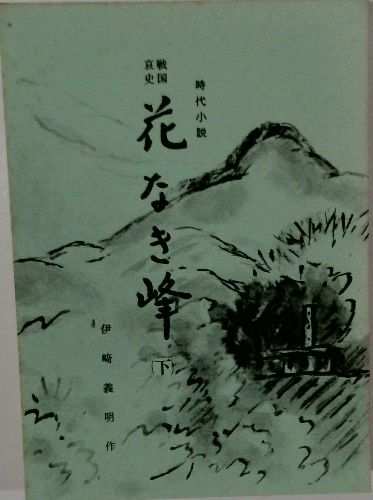 時代小説
戦国
哀史
花なき峰
下
伊﨑義明作